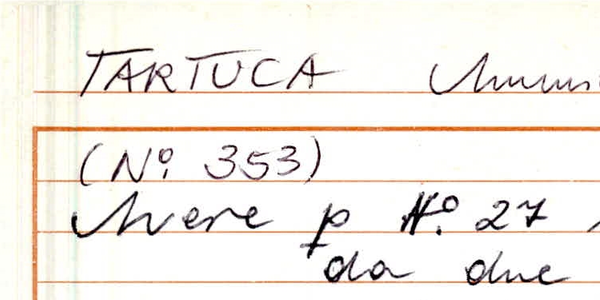 TARTUCA
(Nº. 353)
Avere p Nº. 27
da due